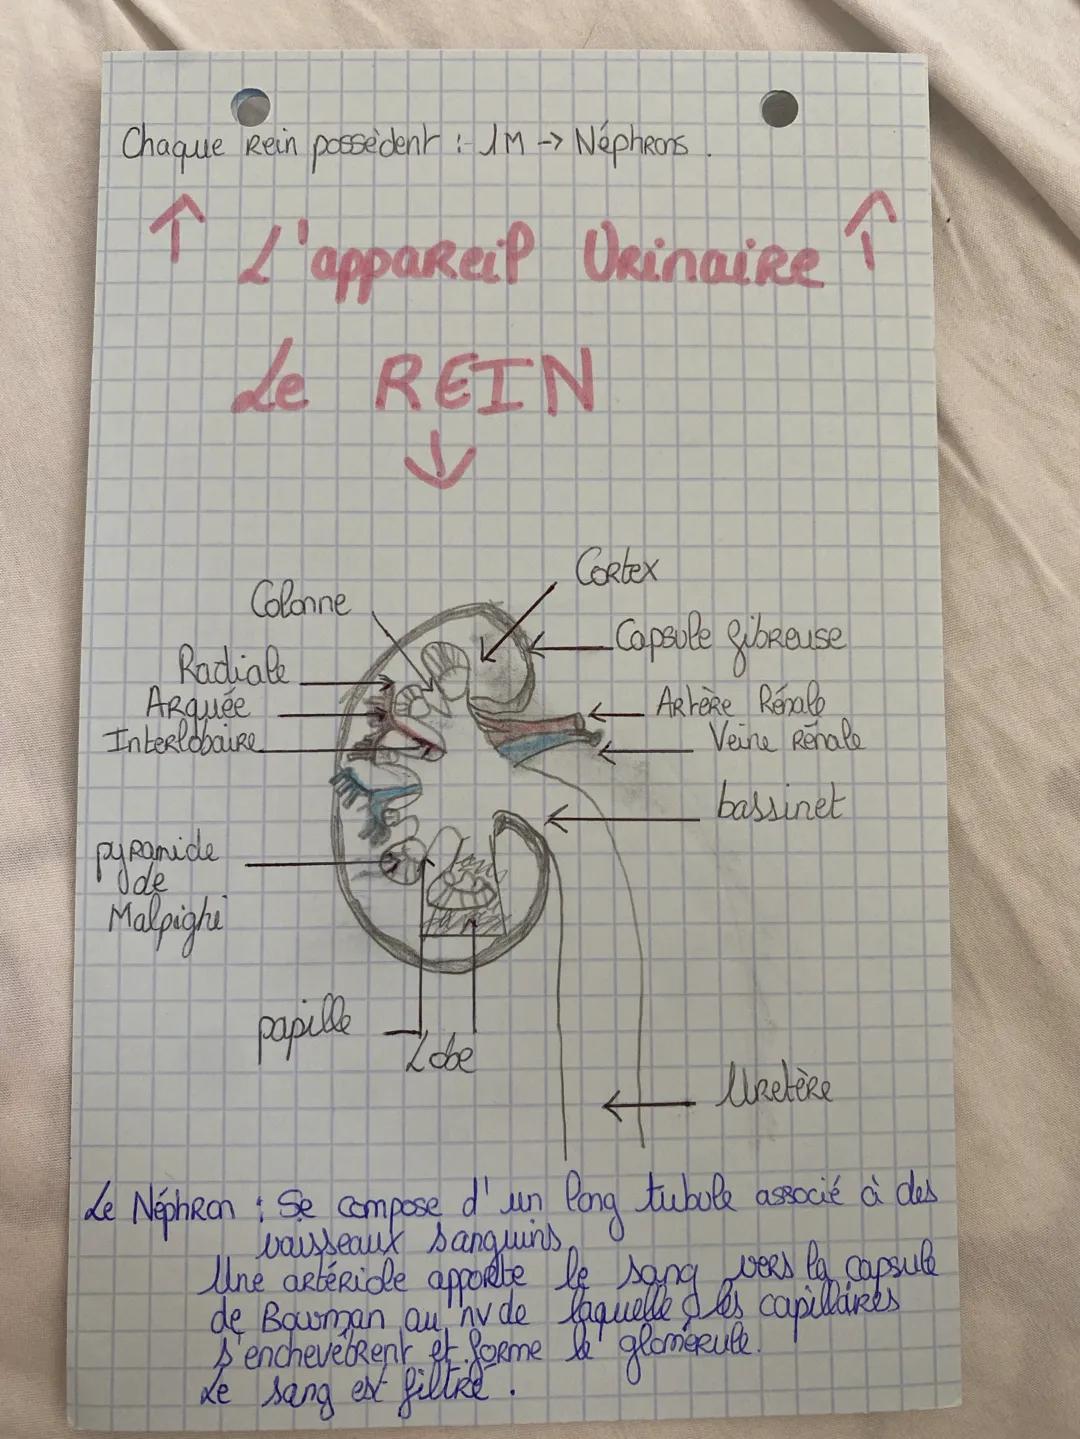 Chaque Rein possèdent :- 1M -> Néphrons.
↑ L'appareil Urinaire ↑
Le REIN
↓
Cortex
Colonne
Capsule fibreuse
Radiale
Arquée
Artère Rénale
Interlobaire
Veine Rénale
bassinet
pyramide
de
Malpighi
papille
Lobe
Uretère
Le Néphron : Se compose d'un long tubule associé à des
vaisseaux sanguins
Une artériole apporte le sang vers la capsule
de Bowman au nv de laquelle les capillaires
s'enchevêtrent et forme le glomérule.
Le sang est filtré.